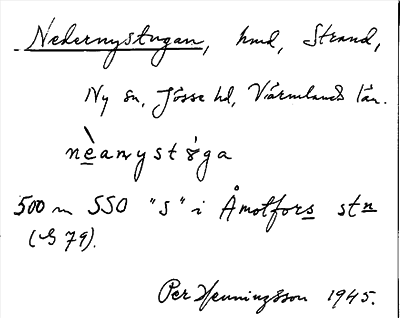 Nedernystugan, hmd, Strand,
Ny sn, Jösse hd, Värmlands län.
nèanystôga
500 m SSO "s" i Åmotfors stn
(G 79).
Per Henningsson 1945.